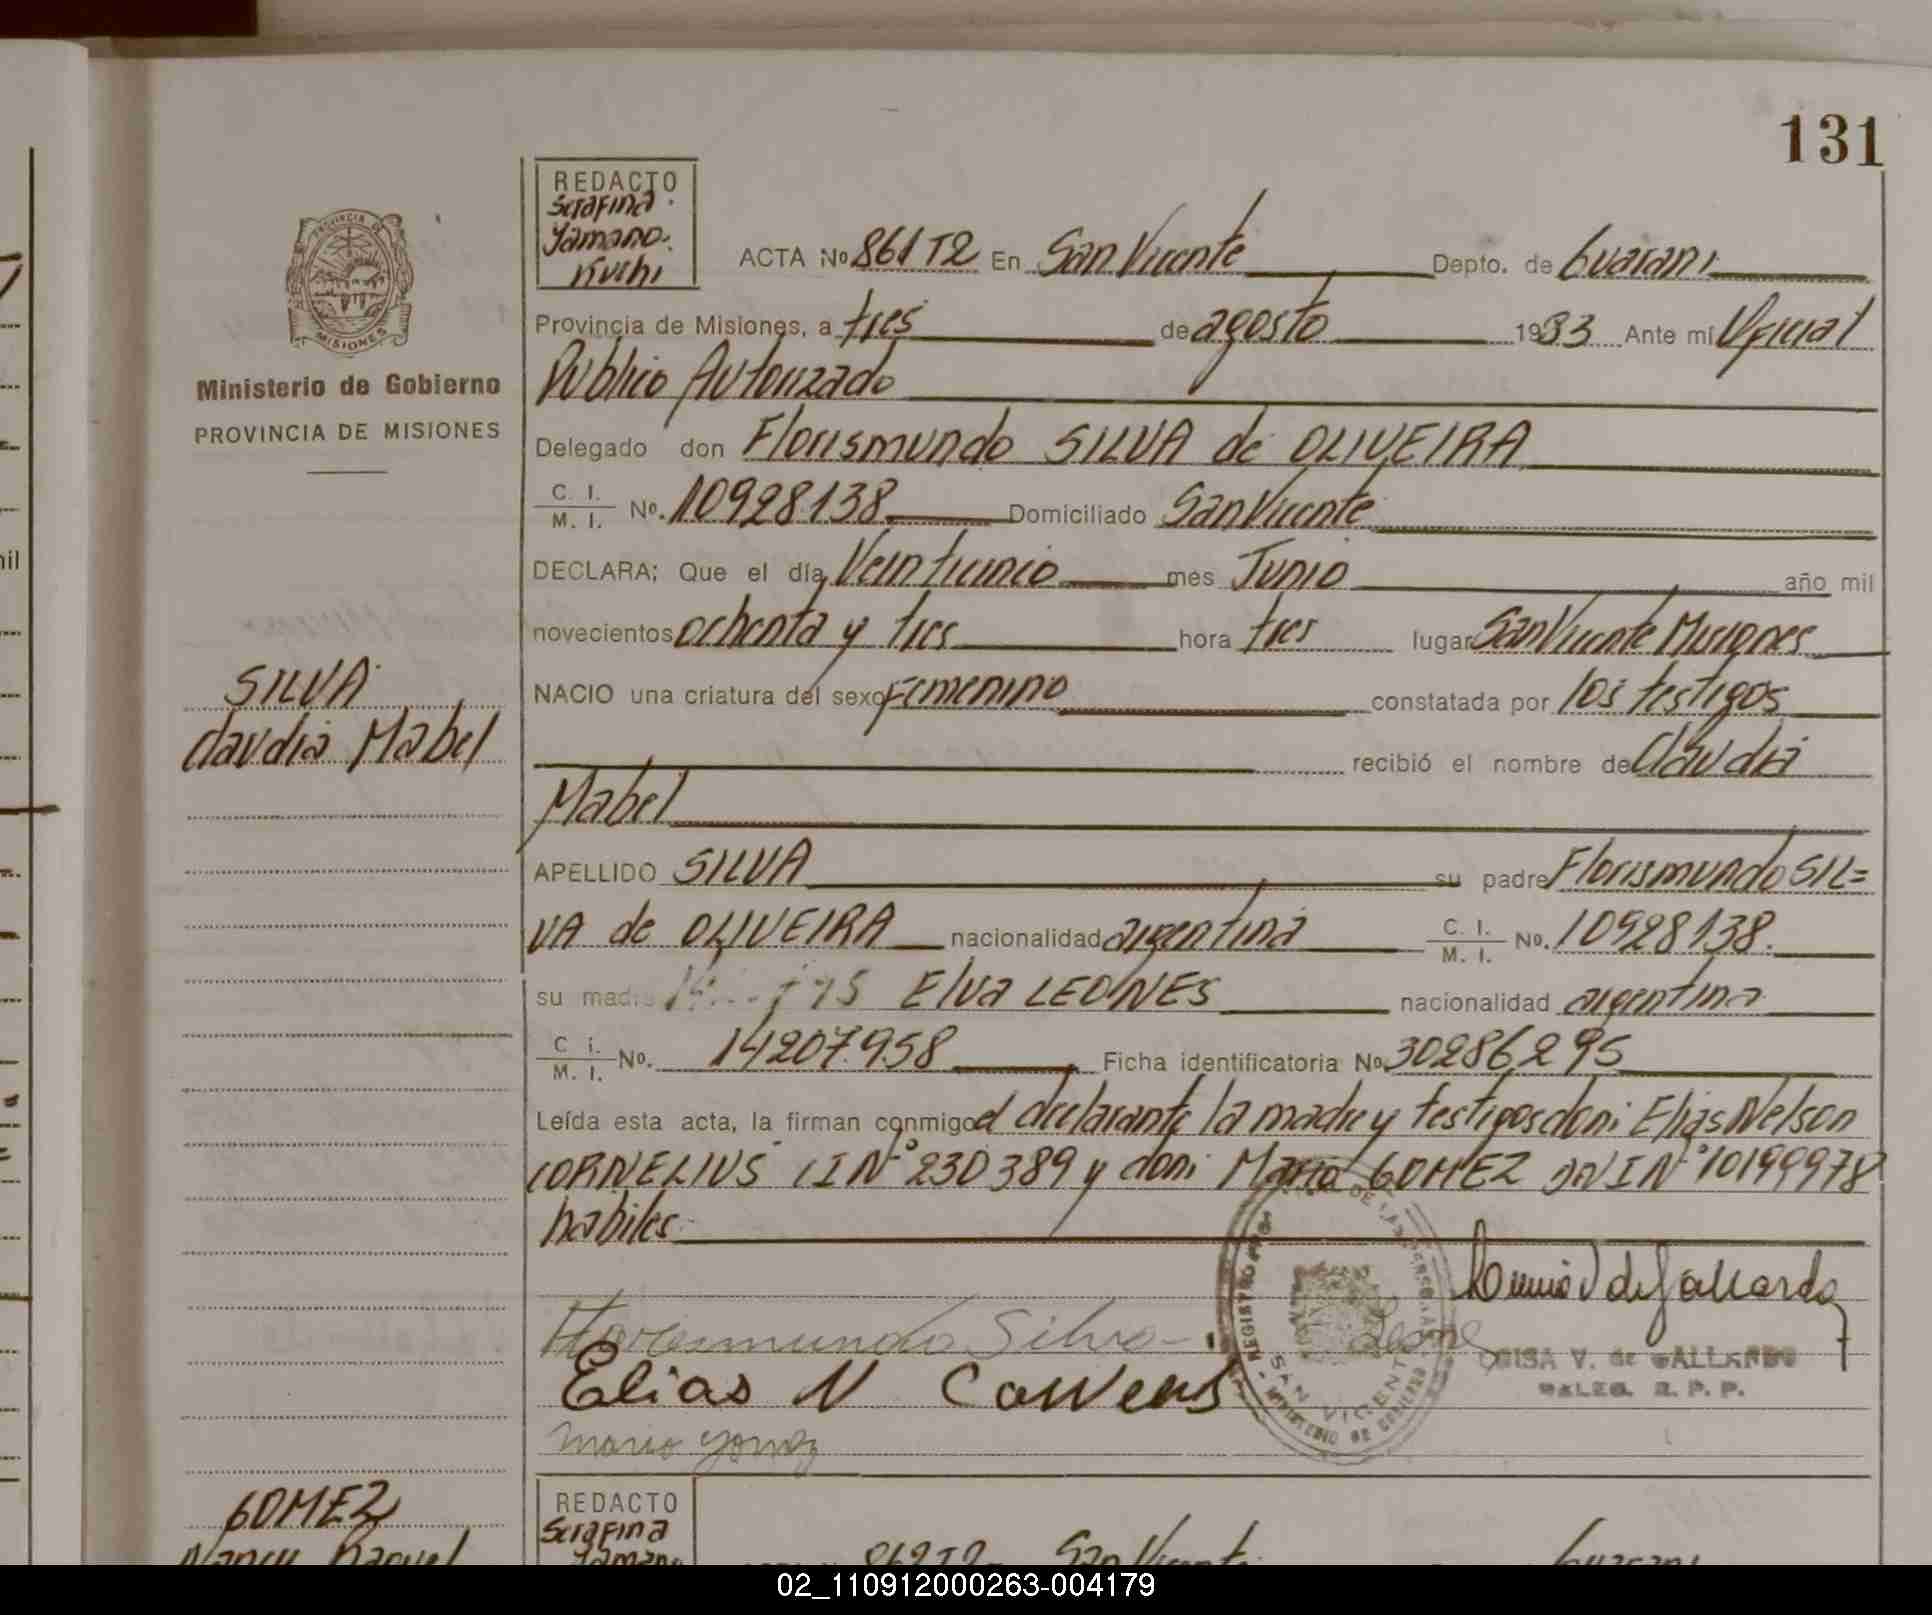 131
REDACTO
Serafina
Yamano.
Kuchi
ACTA No 861 T2 En San Vicente Depto. de Guarani
Provincia de Misiones, a tres de agosto 1983 Ante mí Oficial
Publico Autorizado
Ministerio de Gobierno
PROVINCIA DE MISIONES
PROVINCIA DE
MISIONES
Delegado don Florismundo SILVA de OLIVEIRA
C. I.
M. I. No. 10928138 Domiciliado San Vicente
DECLARA; Que el día Veinticinco mes Junio año mil
novecientos ochenta y tres hora tres lugar San Vicente Misiones
SILVA
Claudia Mabel
NACIO una criatura del sexo Femenino constatada por los testigos
recibió el nombre de Claudia
Mabel
APELLIDO SILVA su padre Florismundo SIL=
VA de OLIVEIRA nacionalidad argentina C. I.
M. I. No. 10928138.
su madre Elva LEONES nacionalidad argentina
C i.
M. I. No. 14207.958 Ficha identificatoria No 30286295
Leída esta acta, la firman conmigo el declarante la madre y testigos don: Elias Nelson
CORNELIUS CI Nº 230389 y don: Mario GOMEZ DNI Nº 10199978
habiles.
Florismundo Silva
Elias N
Mario Gomez
SAN VICENTE
LUISA V. de GALLARDO
DELEG. R. P. P.
GOMEZ
Nancy Raquel
REDACTO
Serafina
Yamano
862 T2 San Vicente Guarani
mil
02_110912000263-004179